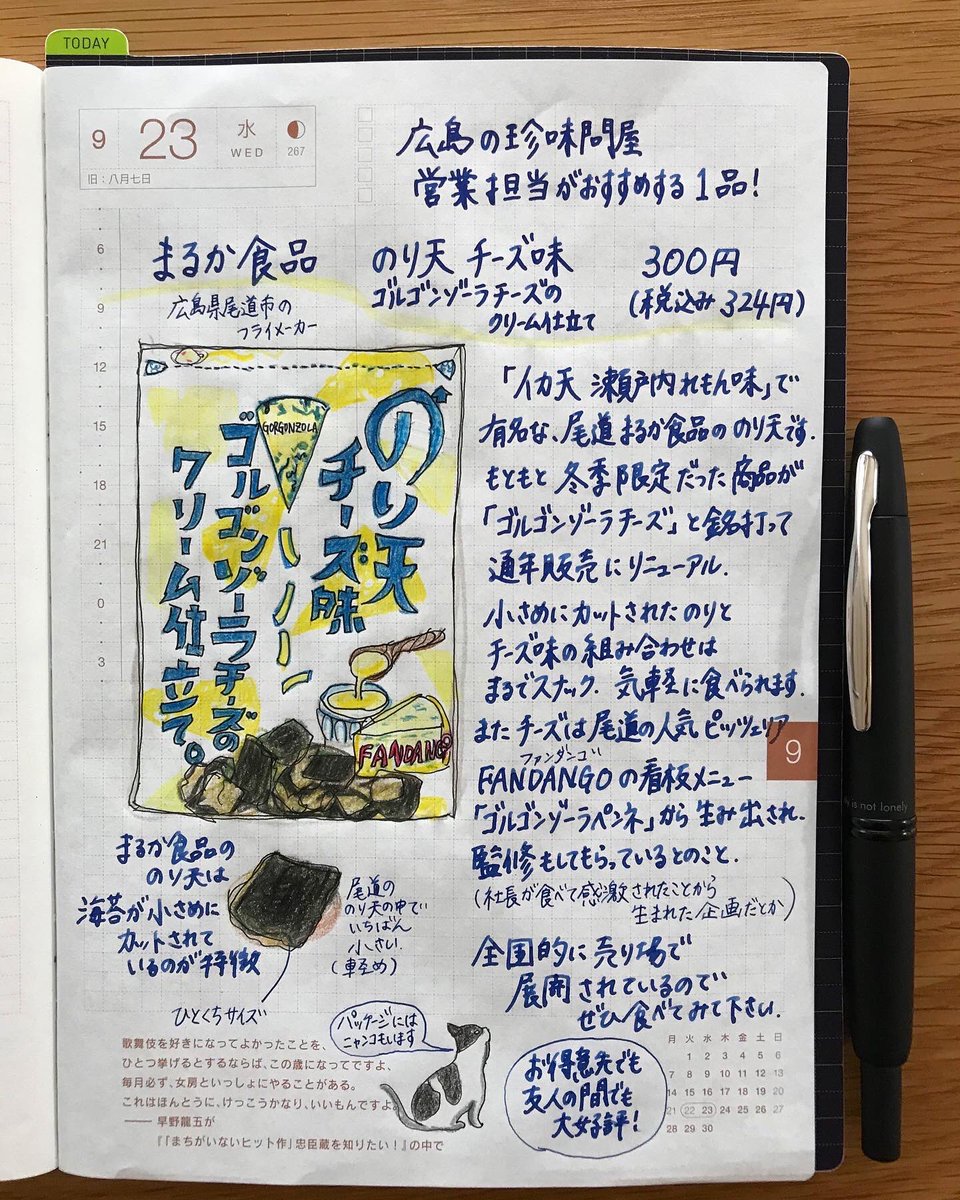 TODAY
9
23
水
WED
267
旧：八月七日
広島の珍味問屋
営業担当がおすすめする1品！
まるか食品
広島県尾道市の
フライメーカー
のり天 チーズ味
ゴルゴンゾーラチーズの
クリーム仕立て
300円
(税込み324円)
6
9
12
15
18
21
0
3
のり天
チーズ味
GORGONZOLA
ゴルゴンゾーラチーズの
クリーム仕立て。
FANDANGO
「イカ天 瀬戸内れもん味」で
有名な、尾道まるか食品ののり天です.
もともと冬季限定だった商品が
「ゴルゴンゾーラチーズ」と銘打って
通年販売にリニューアル.
小さめにカットされたのりと
チーズ味の組み合わせは
まるでスナック. 気軽に食べられます.
またチーズは尾道の人気ピッツェリア
ファンダンゴ
FANDANGOの看板メニュー
「ゴルゴンゾーラペンネ」から生み出され.
監修もしてもらっているとのこと.
(社長が食べて感激されたことから
生まれた企画だとか)
全国的に売り場で
展開されているので
ぜひ食べてみて下さい.
9
まるか食品の
のり天は
海苔が小さめに
カットされて
いるのが特徴
尾道の
のり天の中で
いちばん
小さい.
(軽め)
ひとくちサイズ
パッケージには
ニャンコもいます
お得意先でも
友人の間でも
大好評！
歌舞伎を好きになってよかったことを、
ひとつ挙げるとするならば、この歳になってですよ、
毎月必ず、女房といっしょにやることがある。
これはほんとうに、けっこうかなり、いいもんですよ。
—— 早野龍五が
『「まちがいないヒット作」忠臣蔵を知りたい！』の中で
月 火 水 木 金 土 日
1 2 3 4 5 6
7 8 9 10 11 12 13
14 15 16 17 18 19 20
21 22 23 24 25 26 27
28 29 30
is not lonely